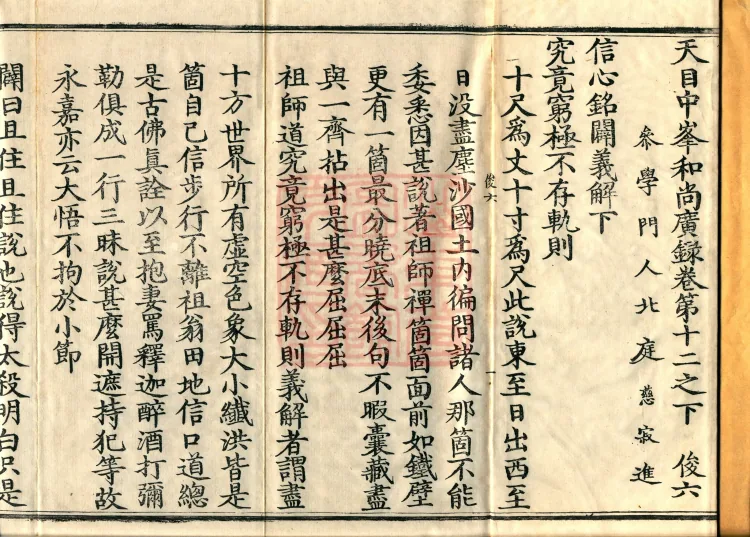 天目中峯和尚廣録卷第十二之下　俊六
叅學門人北庭慈寂進
信心銘闢義解下
究竟窮極不存軌則
十尺爲丈十寸爲尺此說東至日出西至
日没盡塵沙國土内徧問諸人那箇不能
俊六
一
委悉因甚說著祖師禪箇箇面前如鐵壁
更有一箇最分曉底末後句不暇囊藏盡
與一齊拈出是甚麽屈屈屈
祖師道究竟窮極不存軌則義解者謂盡
十方世界所有虛空色象大小纖洪皆是
箇自己信步行不離祖翁田地信口道總
是古佛眞詮以至抱妻罵釋迦醉酒打彌
勒俱成一行三昧說甚麽開遮持犯等故
永嘉亦云大悟不拘於小節
闢曰且住且住說也說得太殺明白只是